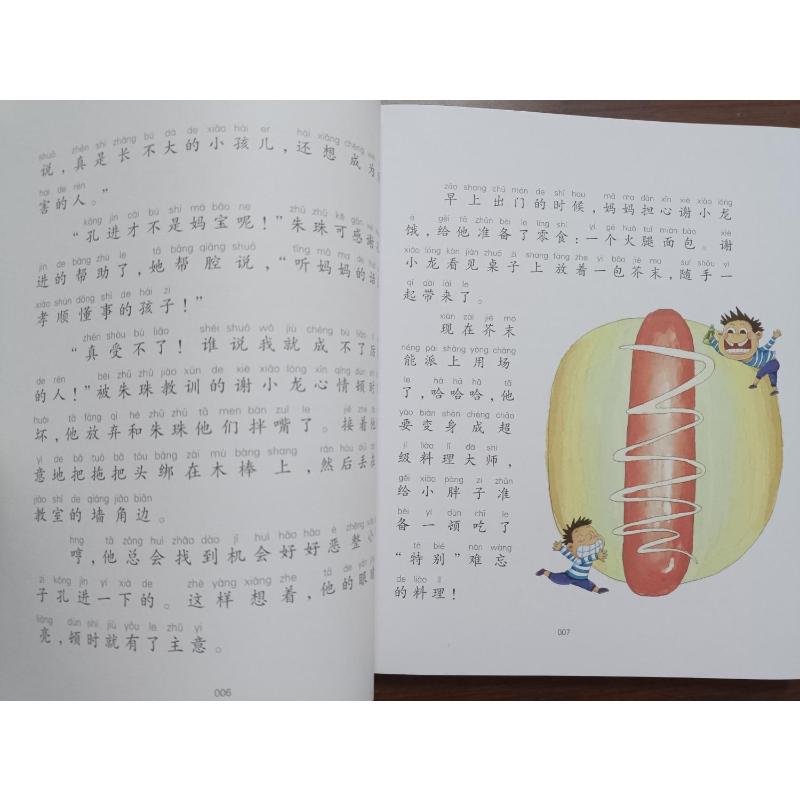 shuō zhēn shì zhǎng bú dà de xiǎo hái er hái xiǎng chéng
说，真是长不大的小孩儿，还想成为
hai de rén
害的人。”
kǒng jìn cái bú shì mā bǎo ne zhū zhū kě gǎn
“孔进才不是妈宝呢！”朱珠可感谢
jìn de bāng zhù le tā bāng qiāng shuō tīng mā ma de
进的帮助了，她帮腔说，“听妈妈的话
xiào shùn dǒng shì de hái zi
孝顺懂事的孩子！”
zhēn shòu bù liǎo shéi shuō wǒ jiù chéng bù liǎo
“真受不了！谁说我就成不了后
de rén bèi zhū zhū jiào xùn de xiè xiǎo lóng xīn qíng dùn
的人！”被朱珠教训的谢小龙心情顿时
huài tā fàng qì hé zhū zhū tā men bàn zuǐ le jiē zhe
坏，他放弃和朱珠他们拌嘴了。接着他
yì de bǎ tuō bǎ tóu bǎng zài mù bàng shang rán hòu
意地把拖把头绑在木棒上，然后丢在
jiào shì de qiáng jiǎo biān
教室的墙角边。
hng tā zǒng huì zhǎo dào jī huì hǎo hǎo è zhěng
哼，他总会找到机会好好恶整小
zi kǒng jìn yí xià de zhè yàng xiǎng zhe tā de yǎn
子孔进一下的。这样想着，他的眼睛
liàng dùn shí jiù yǒu le zhǔ yi
亮，顿时就有了主意。
006
zǎo shang chū mén de shí hou mā ma dān xīn xiè xiǎo lóng
早上出门的时候，妈妈担心谢小龙
è gěi tā zhǔn bèi le líng shí yí gè huǒ tuǐ miàn bāo xiè
饿，给他准备了零食：一个火腿面包。谢
xiǎo lóng kàn jiàn zhuō zi shang fàng zhe yì bāo jiè mo suí shǒu yì
小龙看见桌子上放着一包芥末，随手一
qǐ dài lái le
起带来了。
xiàn zài jiè mo
现在芥末
néng pài shàng yòng chǎng
能派上用场
le hā hā hā tā
了，哈哈哈，他
yào biàn shēn chéng chāo
要变身成超
jí liào lǐ dà shī
级料理大师，
gěi xiǎo pàng zi zhǔn
给小胖子准
bèi yí dùn chī le
备一顿吃了
tè bié nán wàng
“特别”难忘
de liào lǐ
的料理！
007